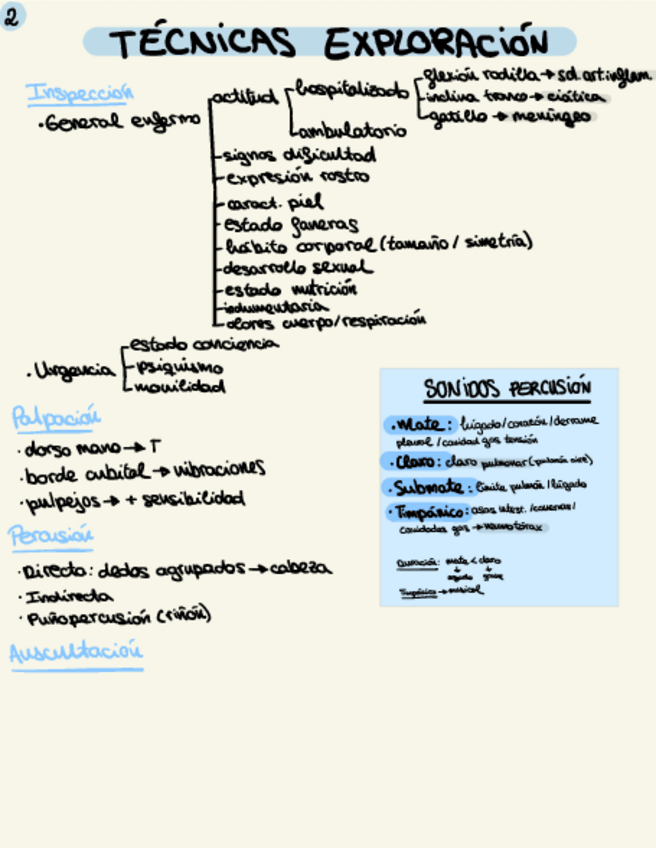 2
TÉCNICAS EXPLORACIÓN
Inspección
·General enfermo
actitud
hospitalizado
flexión rodilla → sd. art. inflam.
inclina tronco → ciática
gatillo → meníngeo
ambulatorio
signos dificultad
expresión rostro
caract. piel
estado faneras
hábito corporal (tamaño / simetría)
desarrollo sexual
estado nutrición
indumentaria
olores cuerpo/respiración
·Urgencia
estado conciencia
psiquismo
movilidad
Palpación
·dorso mano → T
·borde cubital → vibraciones
·pulpejos → + sensibilidad
Percusión
·Directa: dedos agrupados → cabeza
·Indirecta
·Puñopercusión (riñón)
Auscultación
SONIDOS PERCUSIÓN
·Mate: hígado/corazón/derrame
pleural /cavidad gas tensión
·Claro: claro pulmonar (pulmón aire)
·Submate: límite pulmón/hígado
·Timpánico: asas intest. /cavernas/
cavidades gas → neumotórax
Duración: mate < claro
↓ ↓
agudo grave
Timpánico → musical